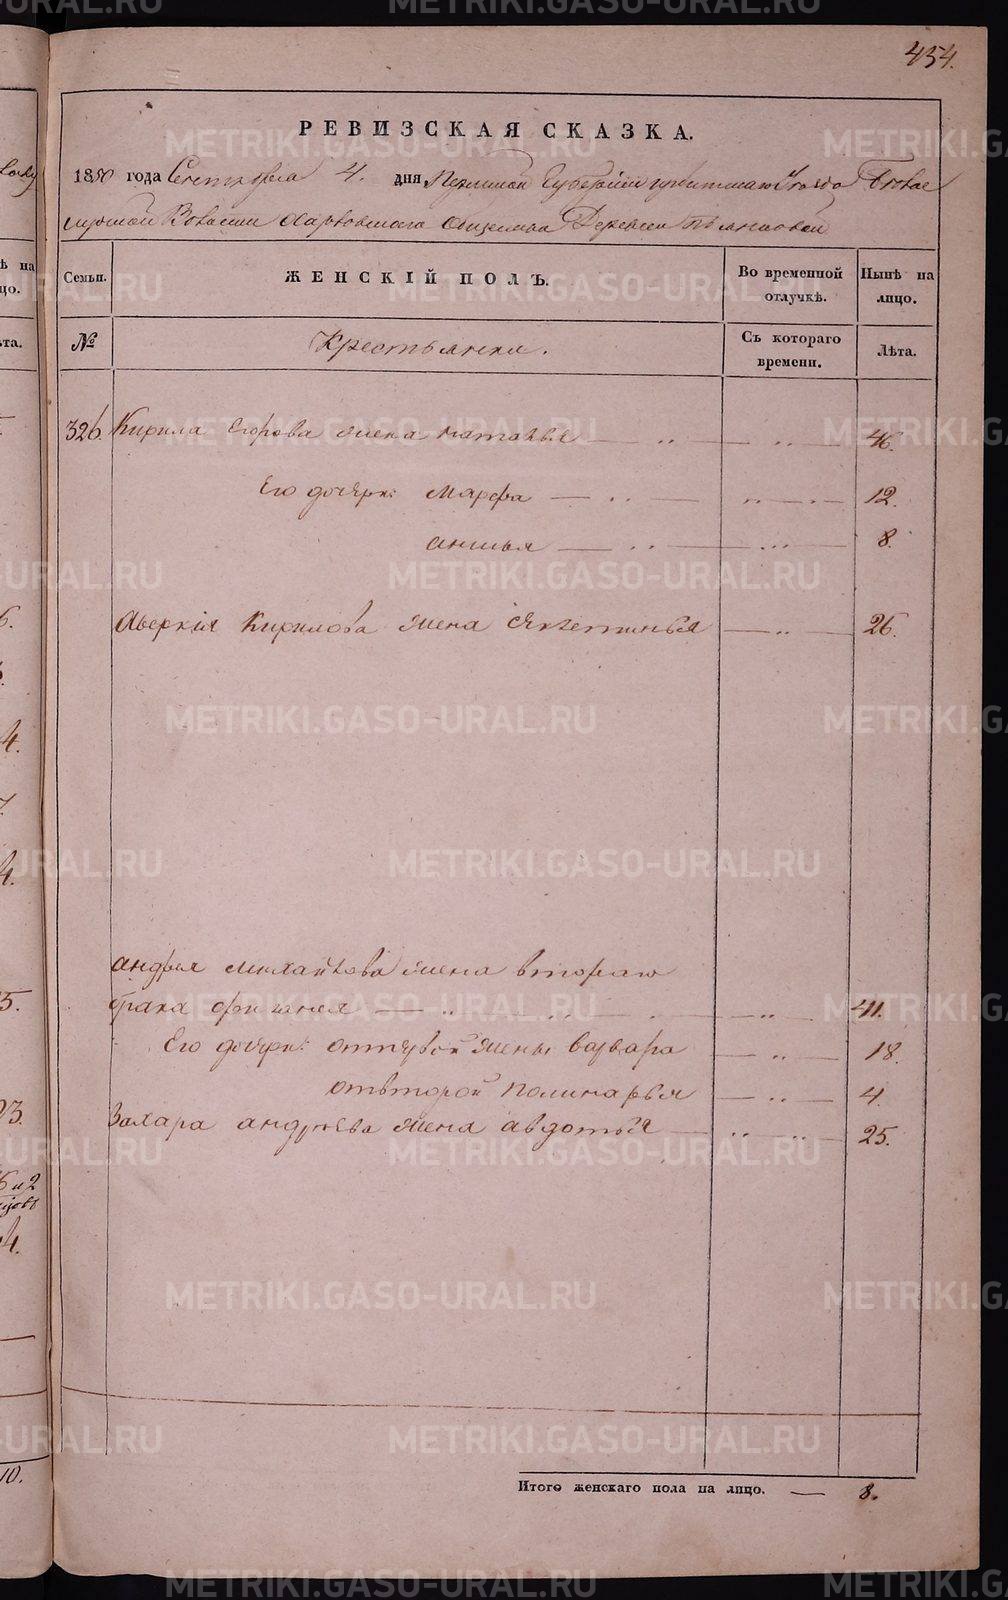 454.
РЕВИЗСКАЯ СКАЗКА.
1850 года Сентября 4. дня Пермской Губернии Уезда
Волости Харловскаго Общества Деревни
Семьи. ЖЕНСКІЙ ПОЛЪ. Во временной отлучкѣ. Нынѣ на лицо.
№ Крестьянки. Съ котораго времени. Лѣта.
326. Кирила Егорова жена Наталья 46.
Его дочери: Марфа 12.
анисья 8.
Аверкія Кирилова жена 26.
андрея Михайлова жена втораго
брака 41.
Его дочери: отпервой жены варвара 18.
отвторой Полинарья 4.
Захара андреева жена авдотья 25.
Итого женскаго пола на лицо. — 8.
METRIKI.GASO-URAL.RU